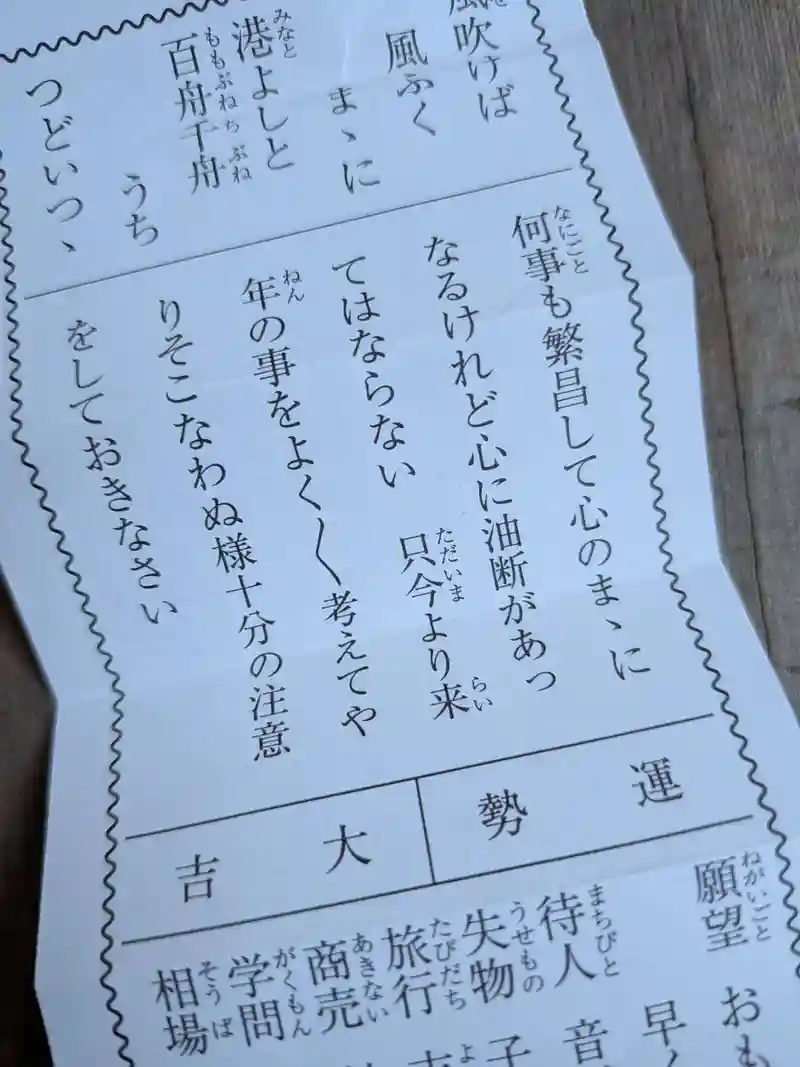 風吹けば
風ふく
まゝに
港よしと
百舟千舟
うち
つどいつゝ
何事も繁昌して心のまゝに
なるけれど心に油断があっ
てはならない　只今より来
年の事をよく〳〵考えてや
りそこなわぬ様十分の注意
をしておきなさい
運勢
大吉
願望　おも
早く
待人　音
失物　子
旅行
商売
学問
相場